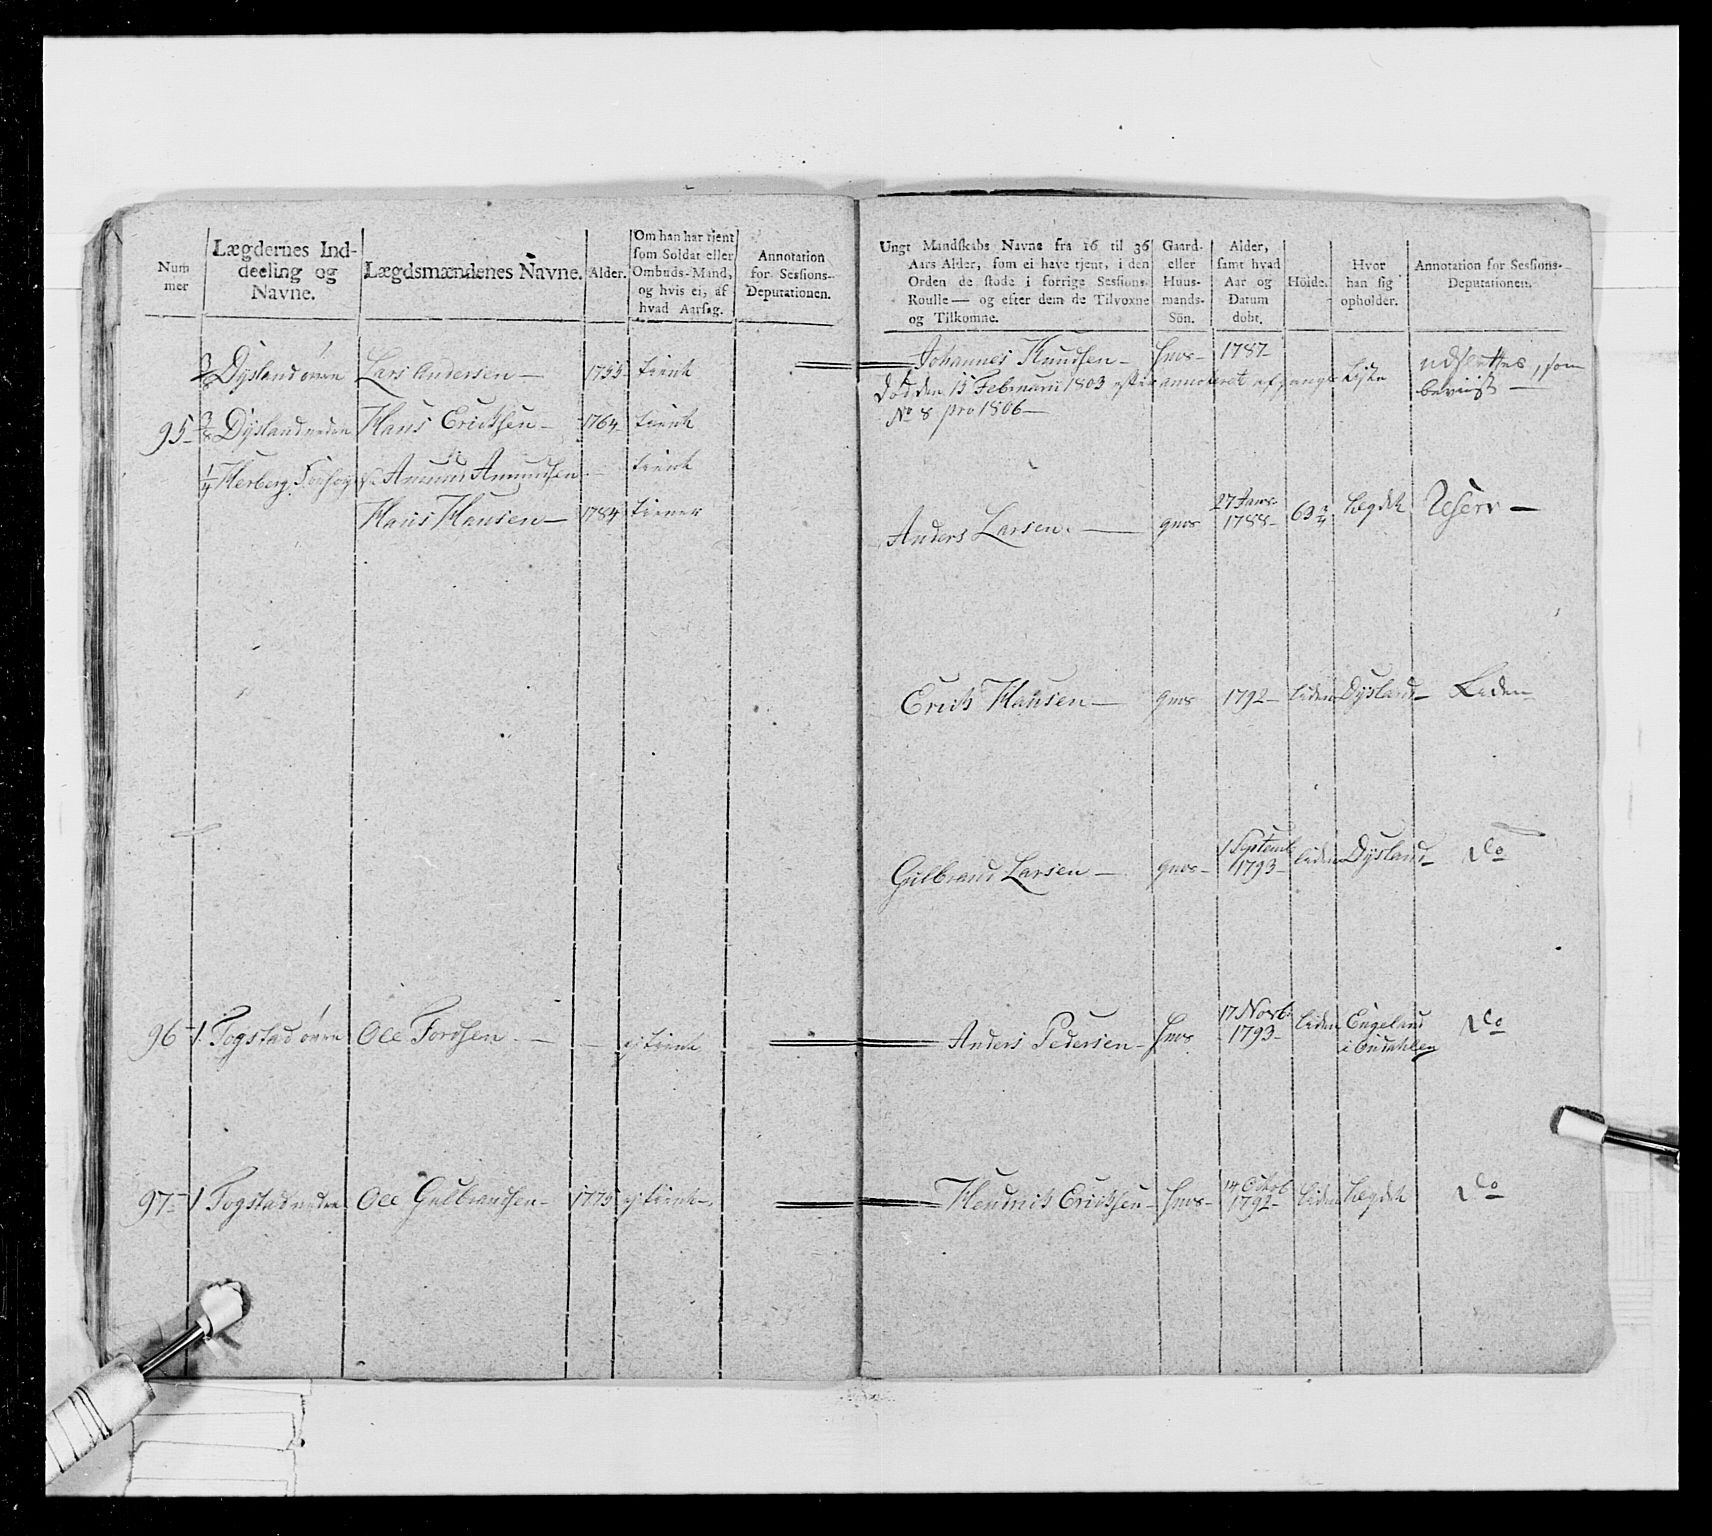 Num
mer
Lægdernes Ind-
deeling og
Navne.
Lægdsmændenes Navne.
Alder.
Om han har tjent
som Soldat eller
Ombuds-Mand,
og hvis ei, af
hvad Aarsag.
Annotation
for Sessions-
Deputationen.
3/8 Dÿsland øvre Lars Andersen — 1755 tient
95 - 3/8 Dÿsland nedre Hans Ericksen — 1764 tient
1/4 Herberg Amund Amundsen — tient
Hans Hansen — 1784 tiener
96 - 1. Fogstad øvre Ole Fordsen — — ej tient
97 - 1 Fogstad nedre Ole Gulbrandsen — 1775 ej tient
Ungt Mandskabs Navne fra 16 til 36
Aars Alder, som ei have tjent, i den
Orden de stode i forrige Sessions-
Roulle — og efter dem de Tilvoxne
og Tilkomne.
Gaard-
eller
Huus-
mands-
Sön.
Alder,
samt hvad
Aar og
Datum
döbt.
Höide.
Hvor
han sig
opholder.
Annotation for Sessions-
Deputationen.
Johannes Knudsen — hms — 1787
Död den 15 Februarii 1803 efter annoteret afgangs Liste
udsettes, som
beviist —
No 8 pro 1806 —
Anders Larsen. — gms 27 Janr 1788 — 63 3/4 Legdet Reserv —
Erich Hansen — gms 1792 — liden Dÿsland — Liden
Gulbrand Larsen — gms — 1 Septemb 1793 — liden Dÿsland — Do
Anders Pedersen — hms 17 Novb 1793 — liden Engeland Do
Hendrich Ericksen — hms — 14 Octob 1792 — liden Legdet Do